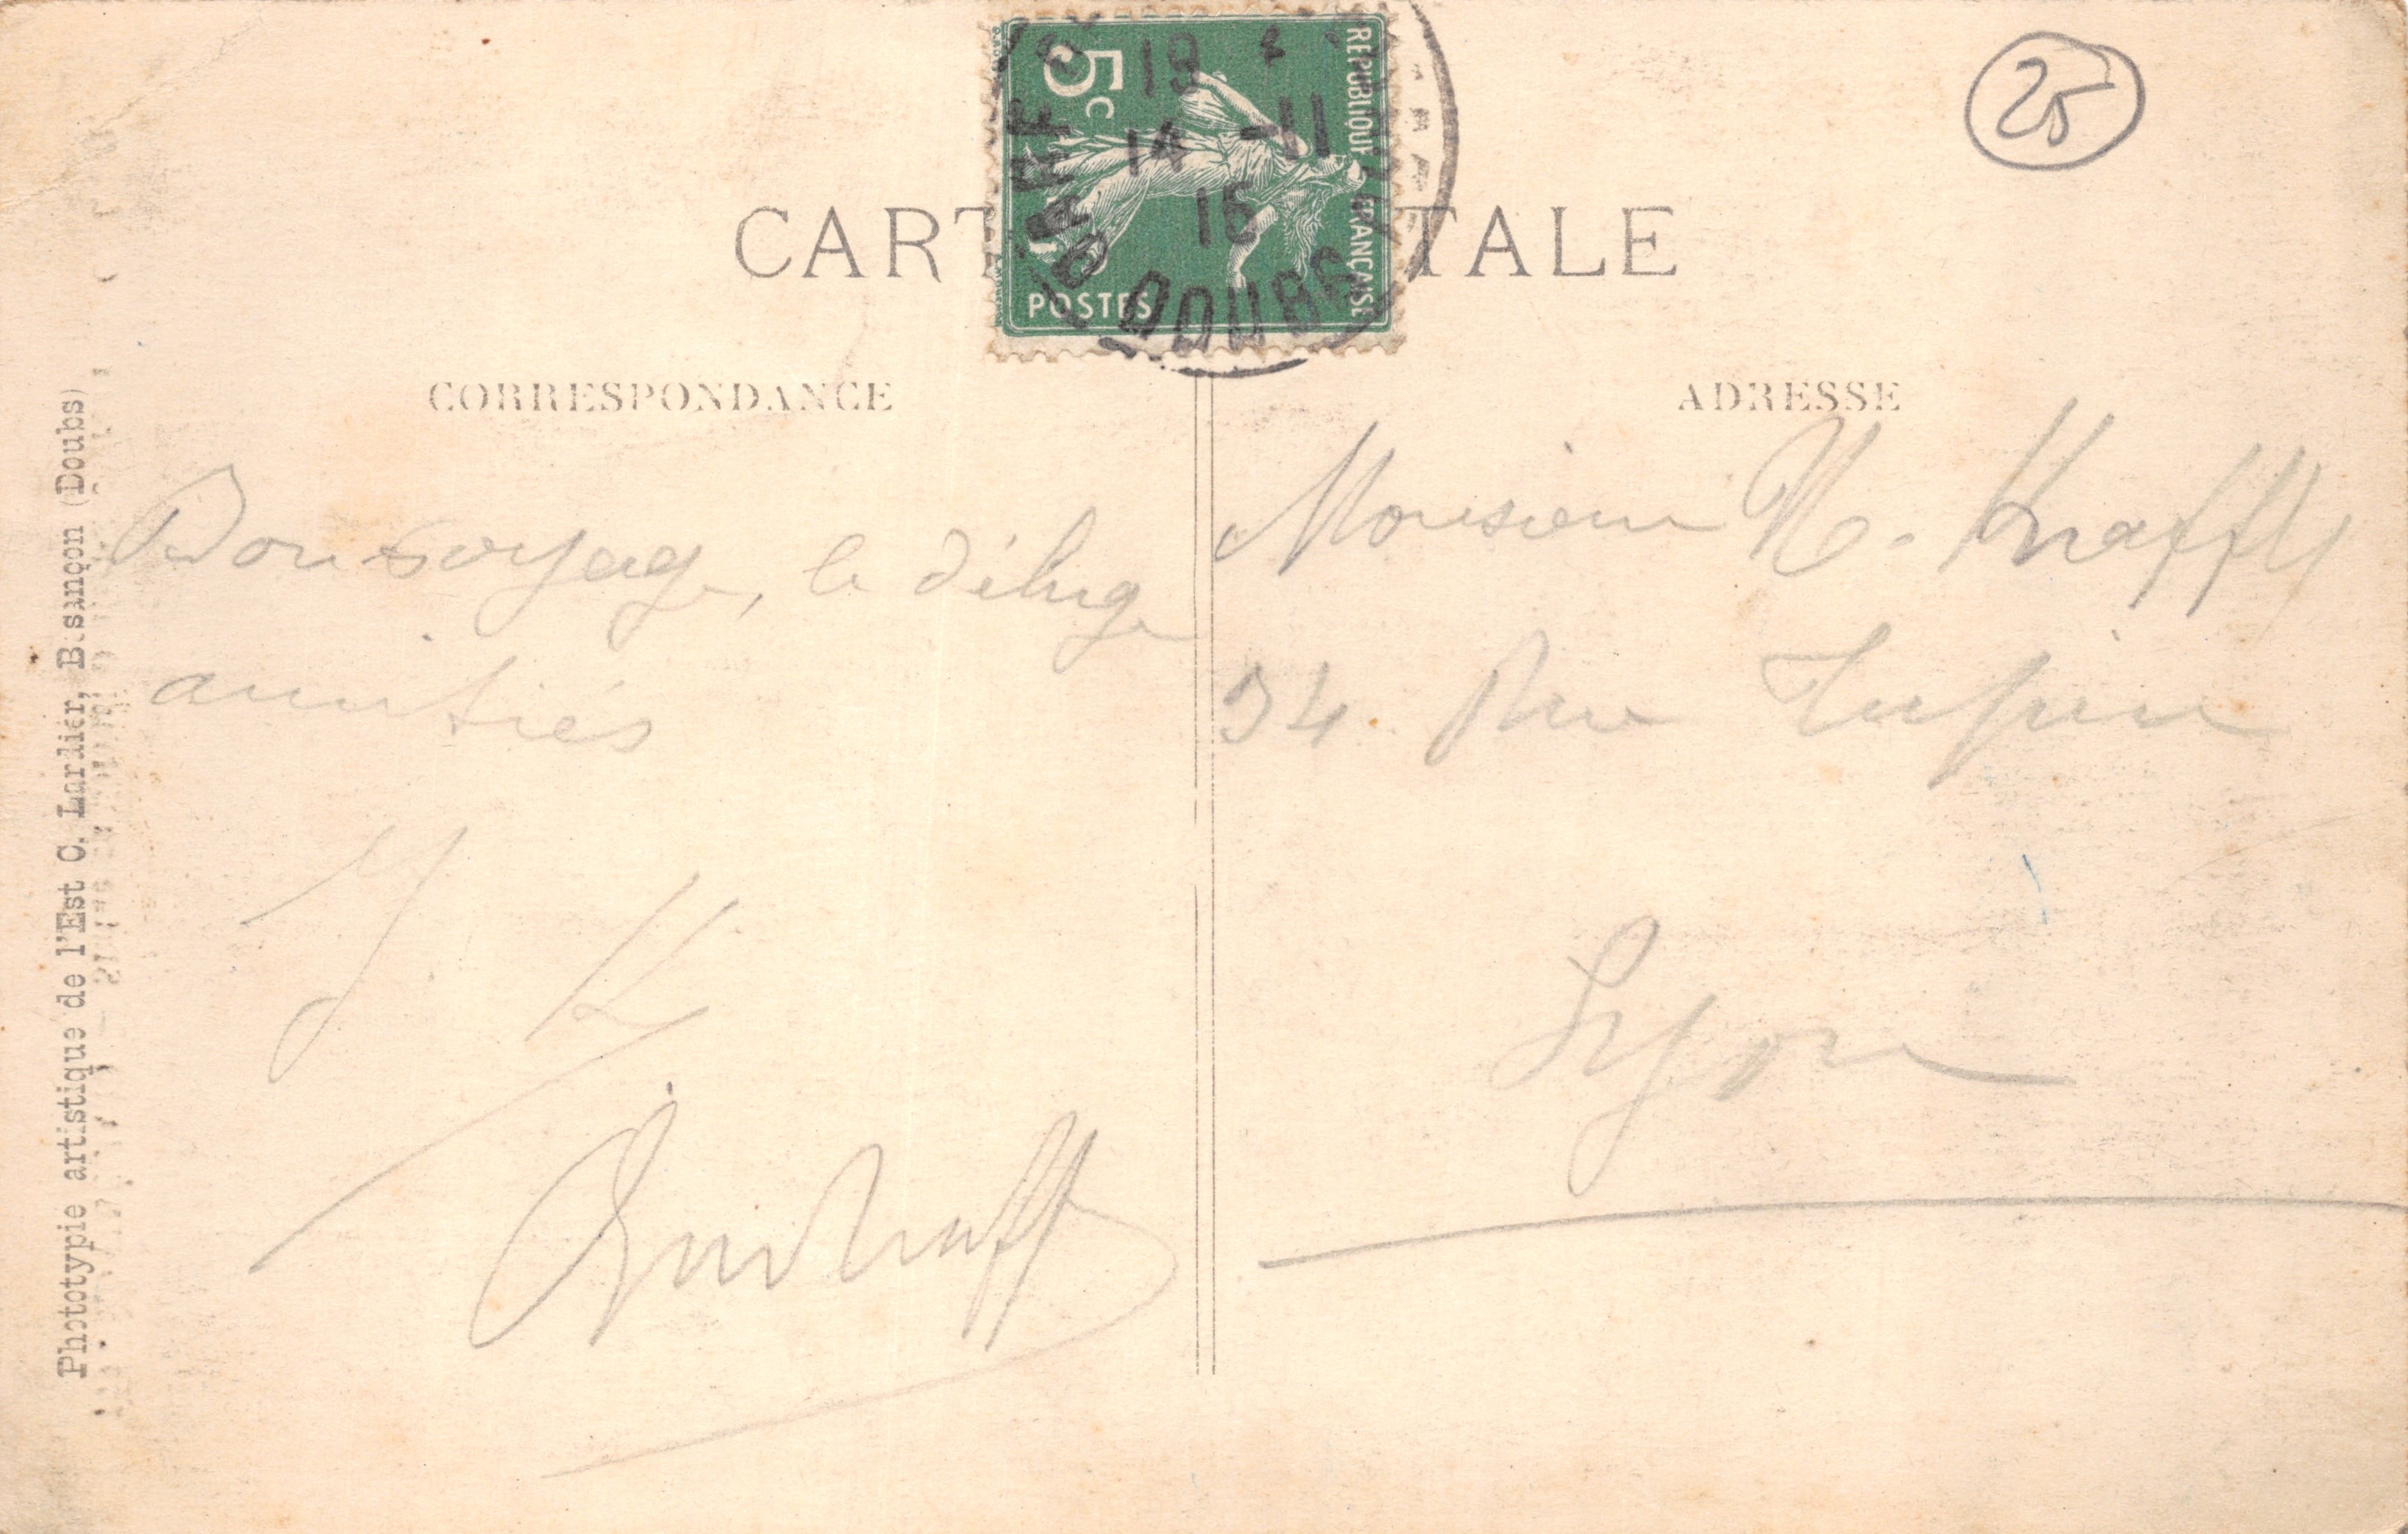 25
5c
RÉPUBLIQUE FRANÇAISE
POSTES
19
14 -11
16
DOUBS
CART TALE
CORRESPONDANCE
ADRESSE
Bon voyage, le déluge
amitiés
J. K
Monsieur
34. Rue Tupin
Lyon
Phototypie artistique de l'Est C. Lardier, Besançon (Doubs)